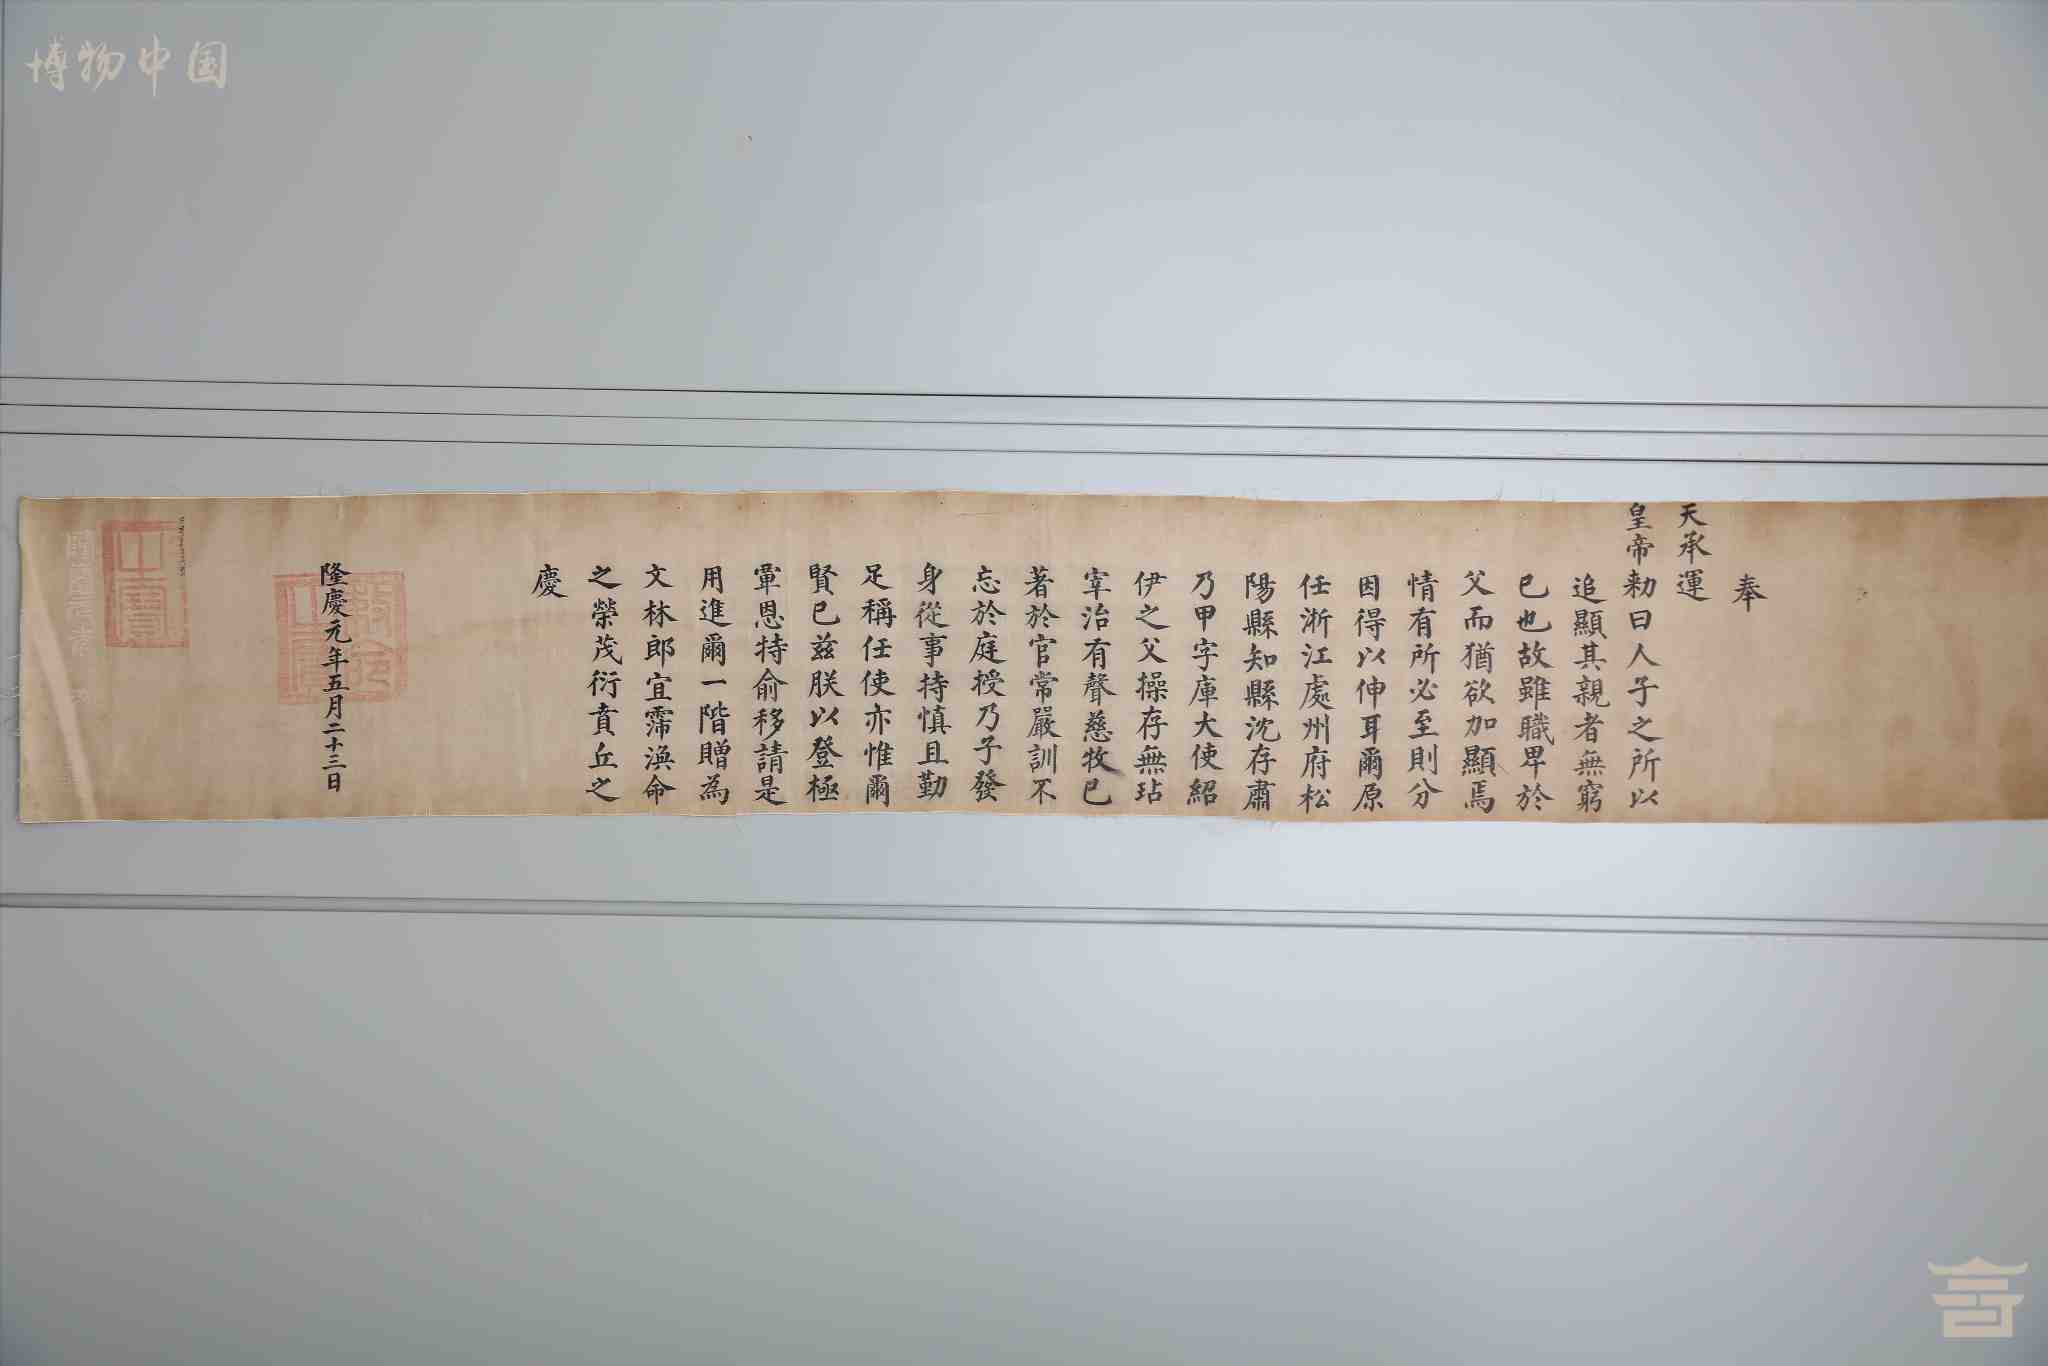 博物中国
奉
天承運
皇帝勑曰人子之所以
追顯其親者無窮
已也故雖職卑於
父而猶欲加顯焉
情有所必至則分
因得以伸耳爾原
任浙江處州府松
陽縣知縣沈存肅
乃甲字庫大使紹
伊之父操存無玷
宰治有聲慈牧已
著於官常嚴訓不
忘於庭授乃子發
身從事持慎且勤
足稱任使亦惟爾
賢已兹朕以登極
覃恩特俞移請是
用進爾一階贈為
文林郎宜霈渙命
之榮茂衍賁丘之
慶
隆慶元年五月二十三日